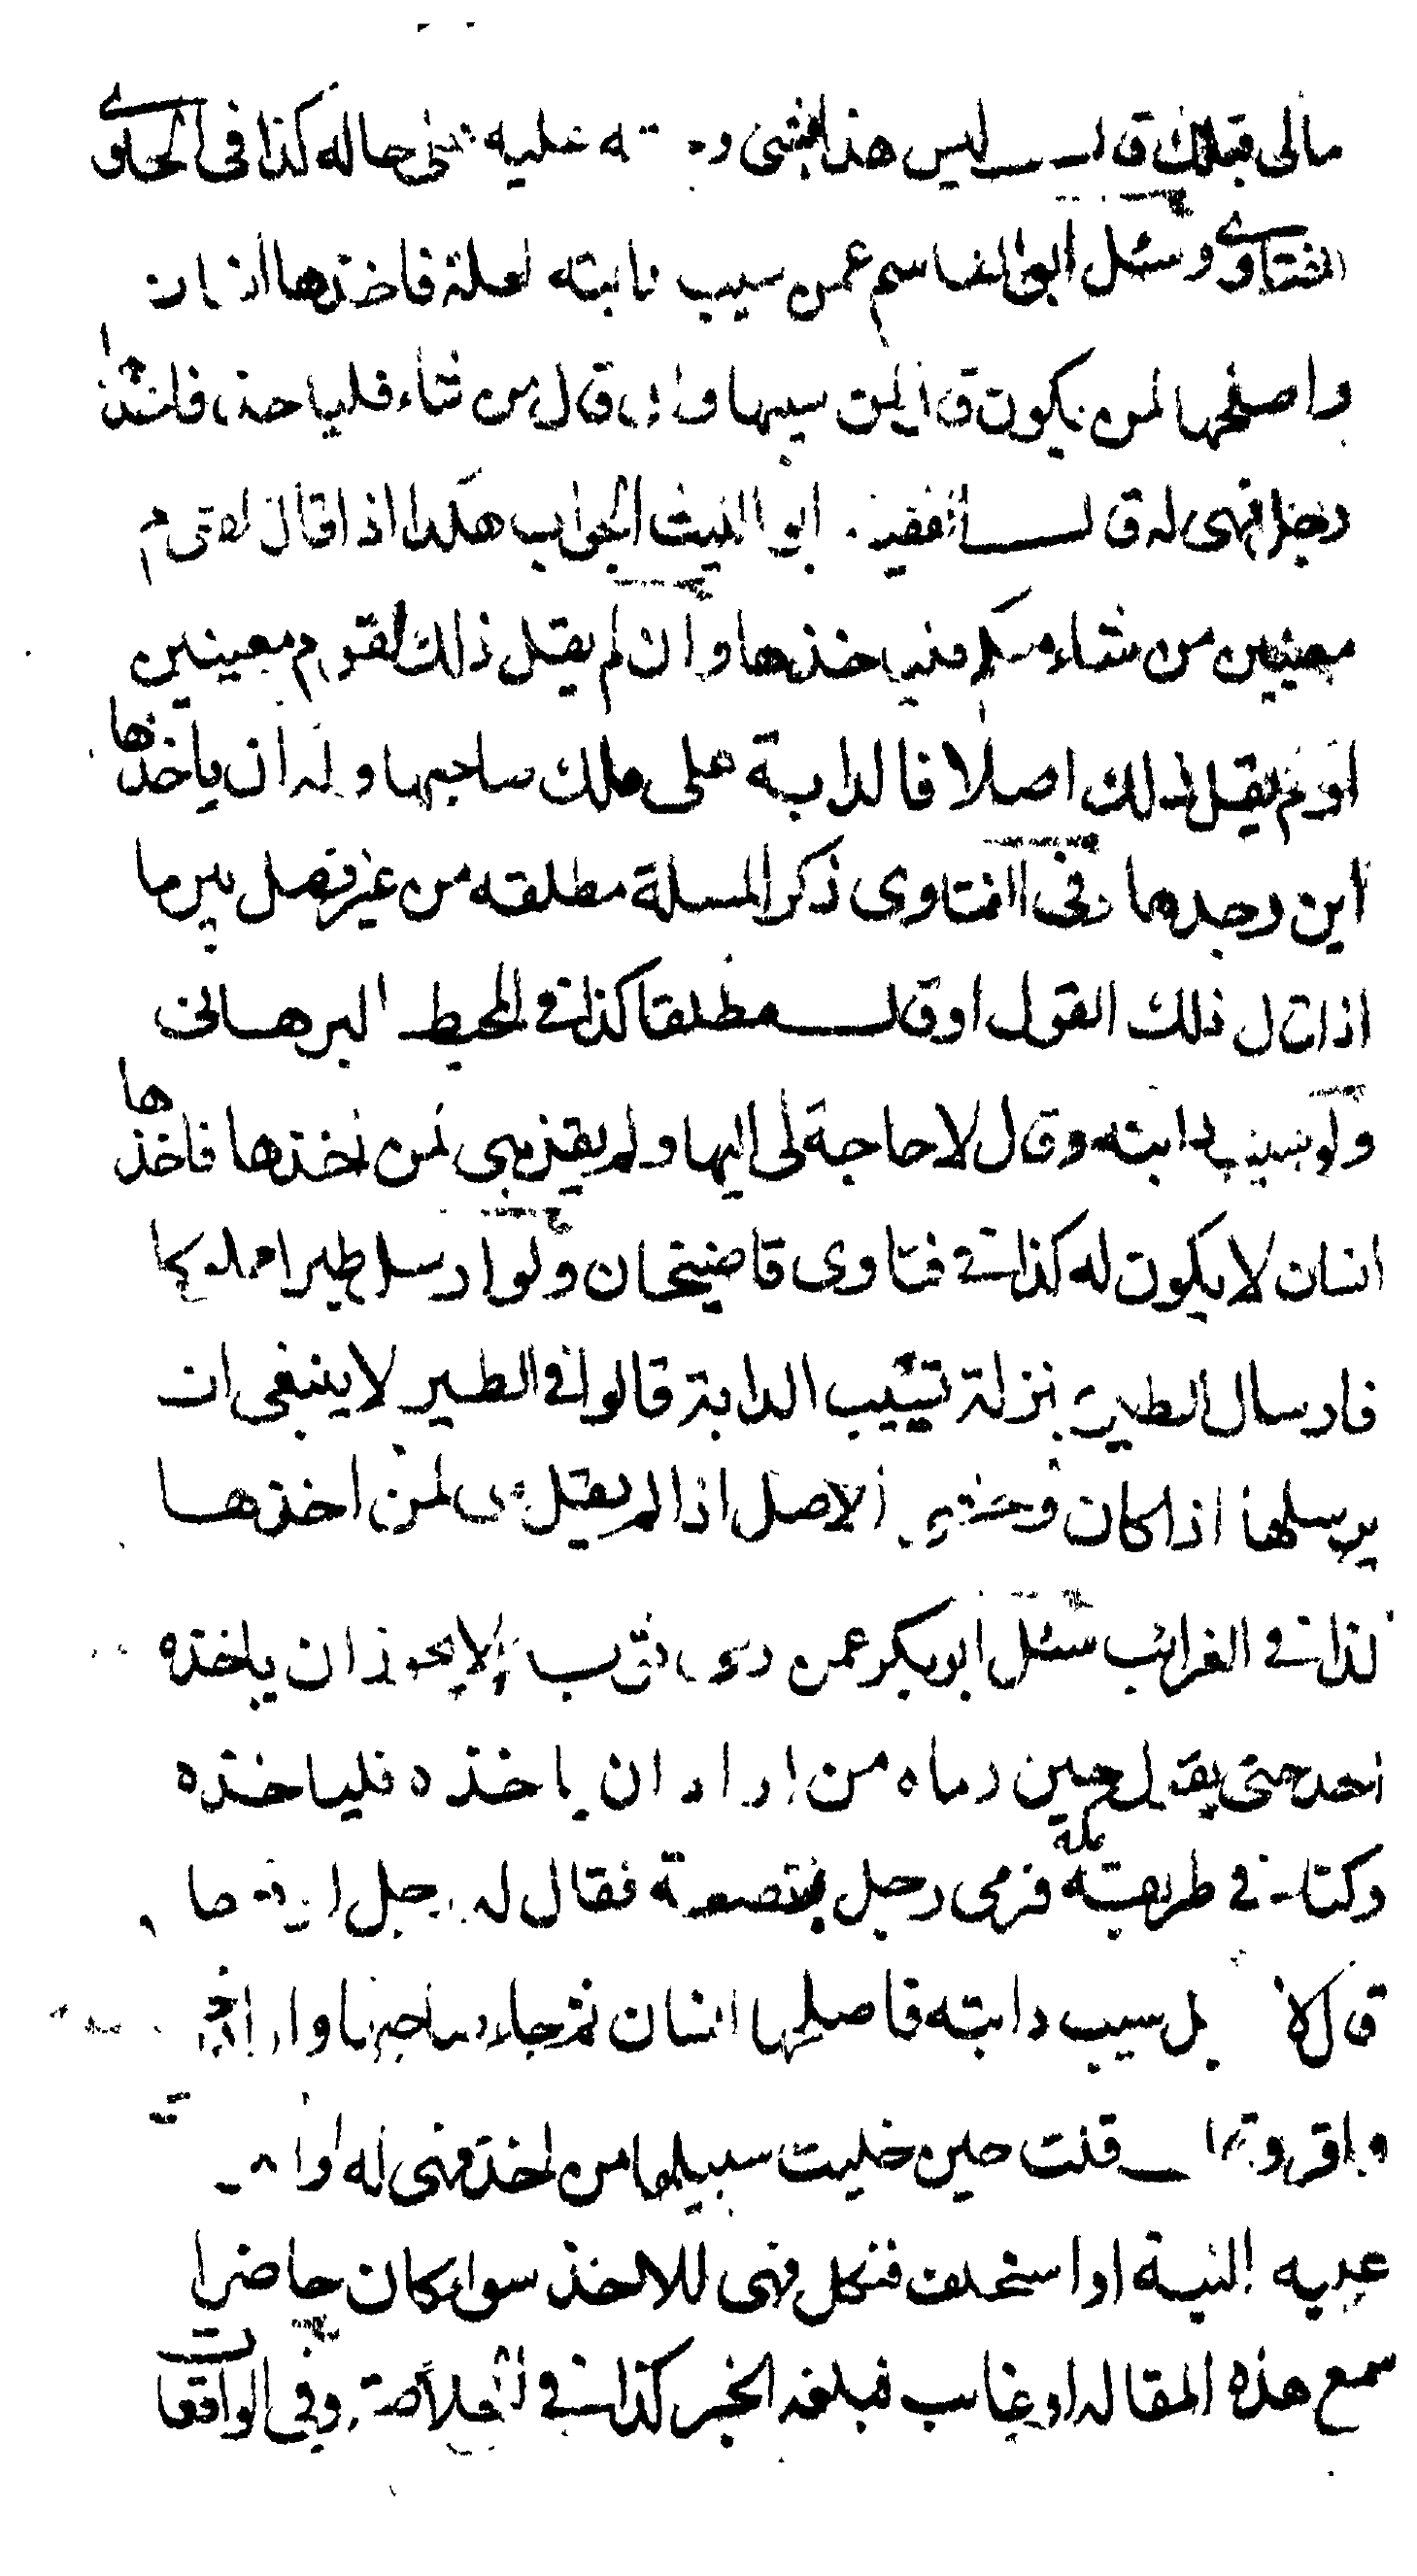 مالى قبلك قال ليس هذا بشى و عليه على حاله كذا فى الحاوى
الفتاوى وسئل ابو القاسم عمن سيب دابته لعلة فاخذها انسان
واصلحها لمن يكون قال لمن سيبها وان قال من شاء فلياخذ فاخذها
رجل فهى له قال الفقيه ابو الليث الجواب هكذا اذا قال لقوم
معينين من شاء منكم فلياخذها وان لم يقل ذلك لقوم معينين
او لم يقل ذلك اصلا فالدابة على ملك صاحبها وله ان ياخذها
اين وجدها وفى الفتاوى ذكر المسلة مطلقه من غير فصل بين ما
اذا قال ذلك القول او قال مطلقا كذا فى المحيط البرهانى
ولو سيب دابته وقال لا حاجة لى اليها ولم يقل هى لمن اخذها فاخذها
انسان لا يكون له كذا فى فتاوى قاضيخان ولو ارسل طيرا مملوكا
فارسال الطير بمنزلة تسييب الدابة قالوا فى الطير لا ينبغى ان
يرسلها اذا كان وحشى الاصل اذا لم يقل هى لمن اخذها
كذا فى الغرائب سئل ابو بكر عمن رمى ثوب لا يجوز ان ياخذه
احد حتى يقول حين رماه من اراد ان ياخذه فلياخذه
وكتاب فى طريقته فرمى رجل فقال له رجل
قال لا رجل سيب دابته فاصلحها انسان ثم جاء صاحبها واراد اخذ
واقر وقال قلت حين خليت سبيلها من اخذ فهى له او
عليه البينة او استحلف فنكل فهى للاخذ سواء كان حاضرا
سمع هذه المقاله او غايب فبلغه الخبر كذا فى الخلاصة وفى الواقعات